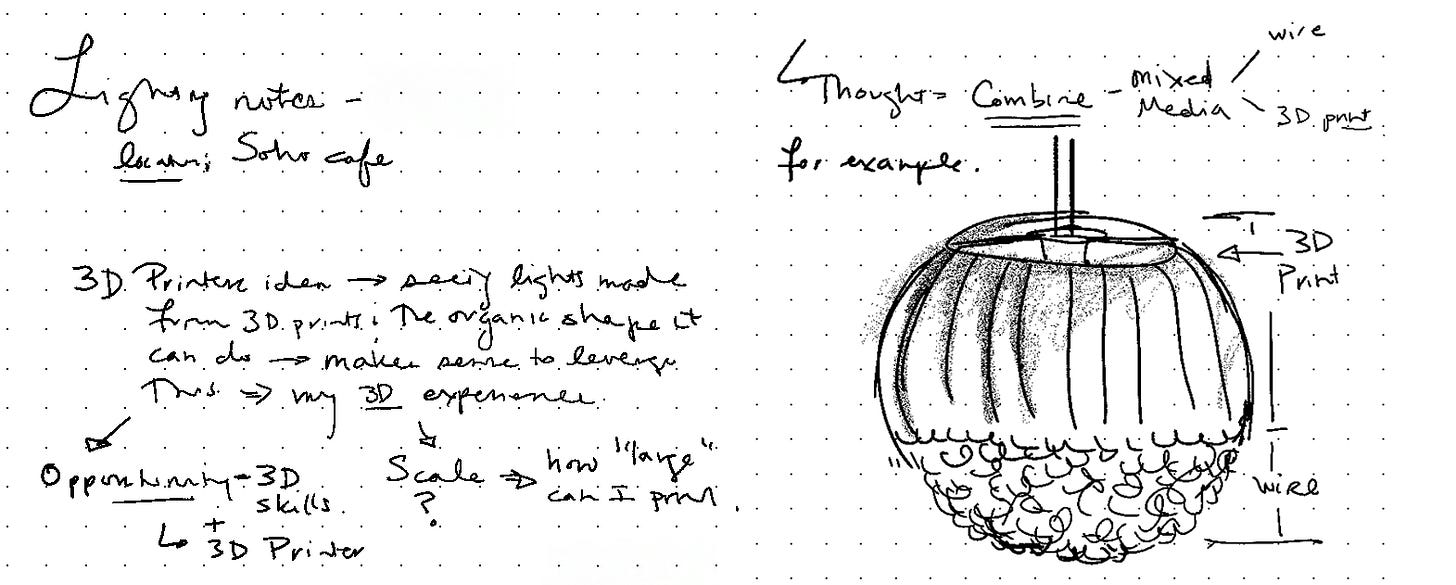 Lighting notes -
location; Soho cafe
3D Printers idea → seeing lights made
from 3D prints; The organic shape it
can do → makes sense to leverage
This ⇒ my 3D experience.
Opportunity - 3D
skills.
+
3D Printer
Scale ⇒ how "large"
? can I print.
Thought = Combine - mixed
Media
wire
3D print
for example.
3D
Print
wire